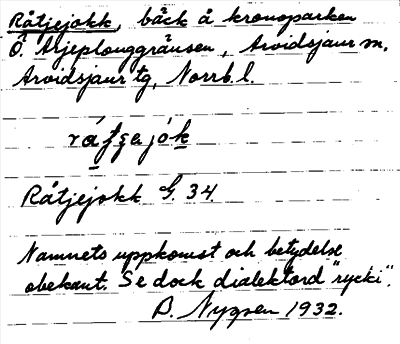 Råtjejokk, bäck å kronoparken
Ö. Arjeplouggränsen, Arvidsjaur sn,
Arvidsjaur tg, Norrb. l.
Råtjejokk G. 34.
Namnets uppkomst och betydelse
obekant. Se dock dialektord "rycki".
B. Nygren 1932.